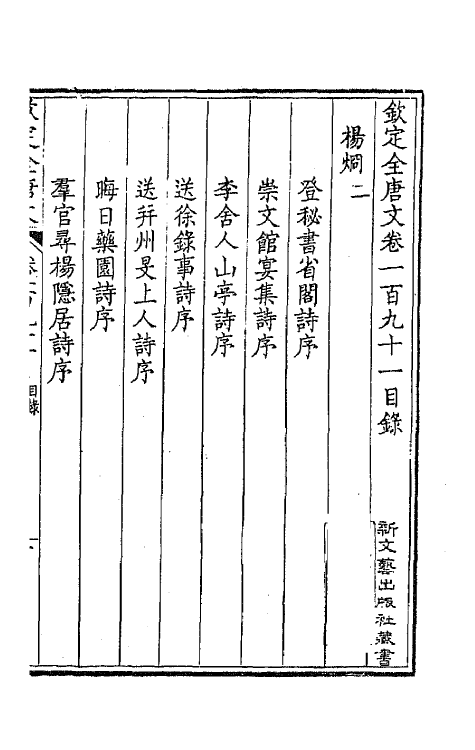 欽定全唐文卷一百九十一目錄
新文藝出版社藏書
楊烱二
登秘書省閣詩序
崇文館宴集詩序
李舍人山亭詩序
送徐錄事詩序
送幷州旻上人詩序
晦日藥園詩序
羣官尋楊隱居詩序